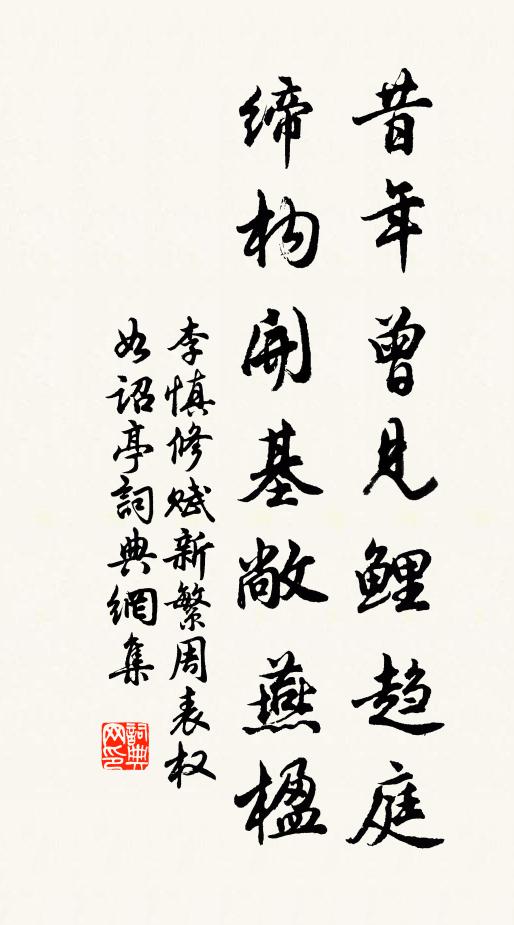 昔年曾見鯉趋庭
缔构開基敞燕楹
李慎修赋新繁周表权
如诏亭詞典網集
詞典网印